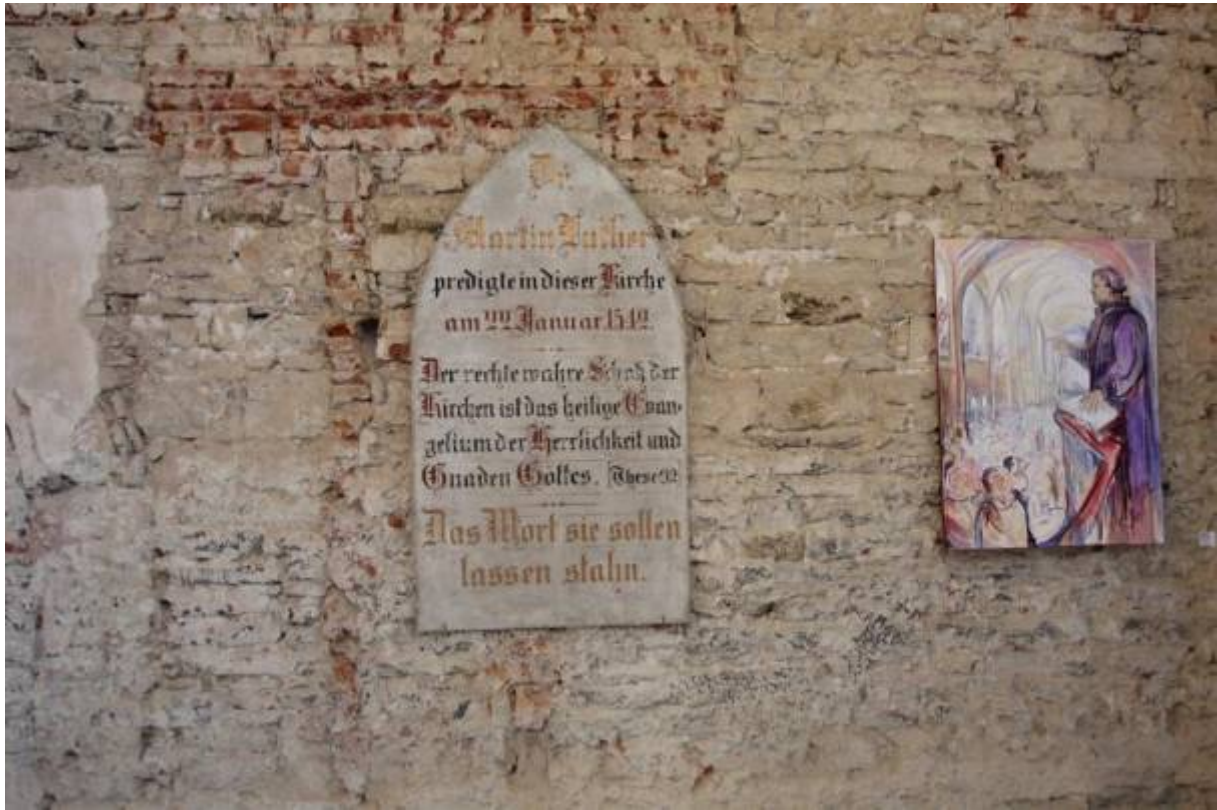 D.
Martin Luther
predigte in dieser Kirche
am 22 Januar. 1542.
Der rechte wahre Schatz der
Kirchen ist das heilige Evan-
gelium der Herrlichkeit und
Gnaden Gottes. These 92
Das Wort sie sollen
lassen stahn.